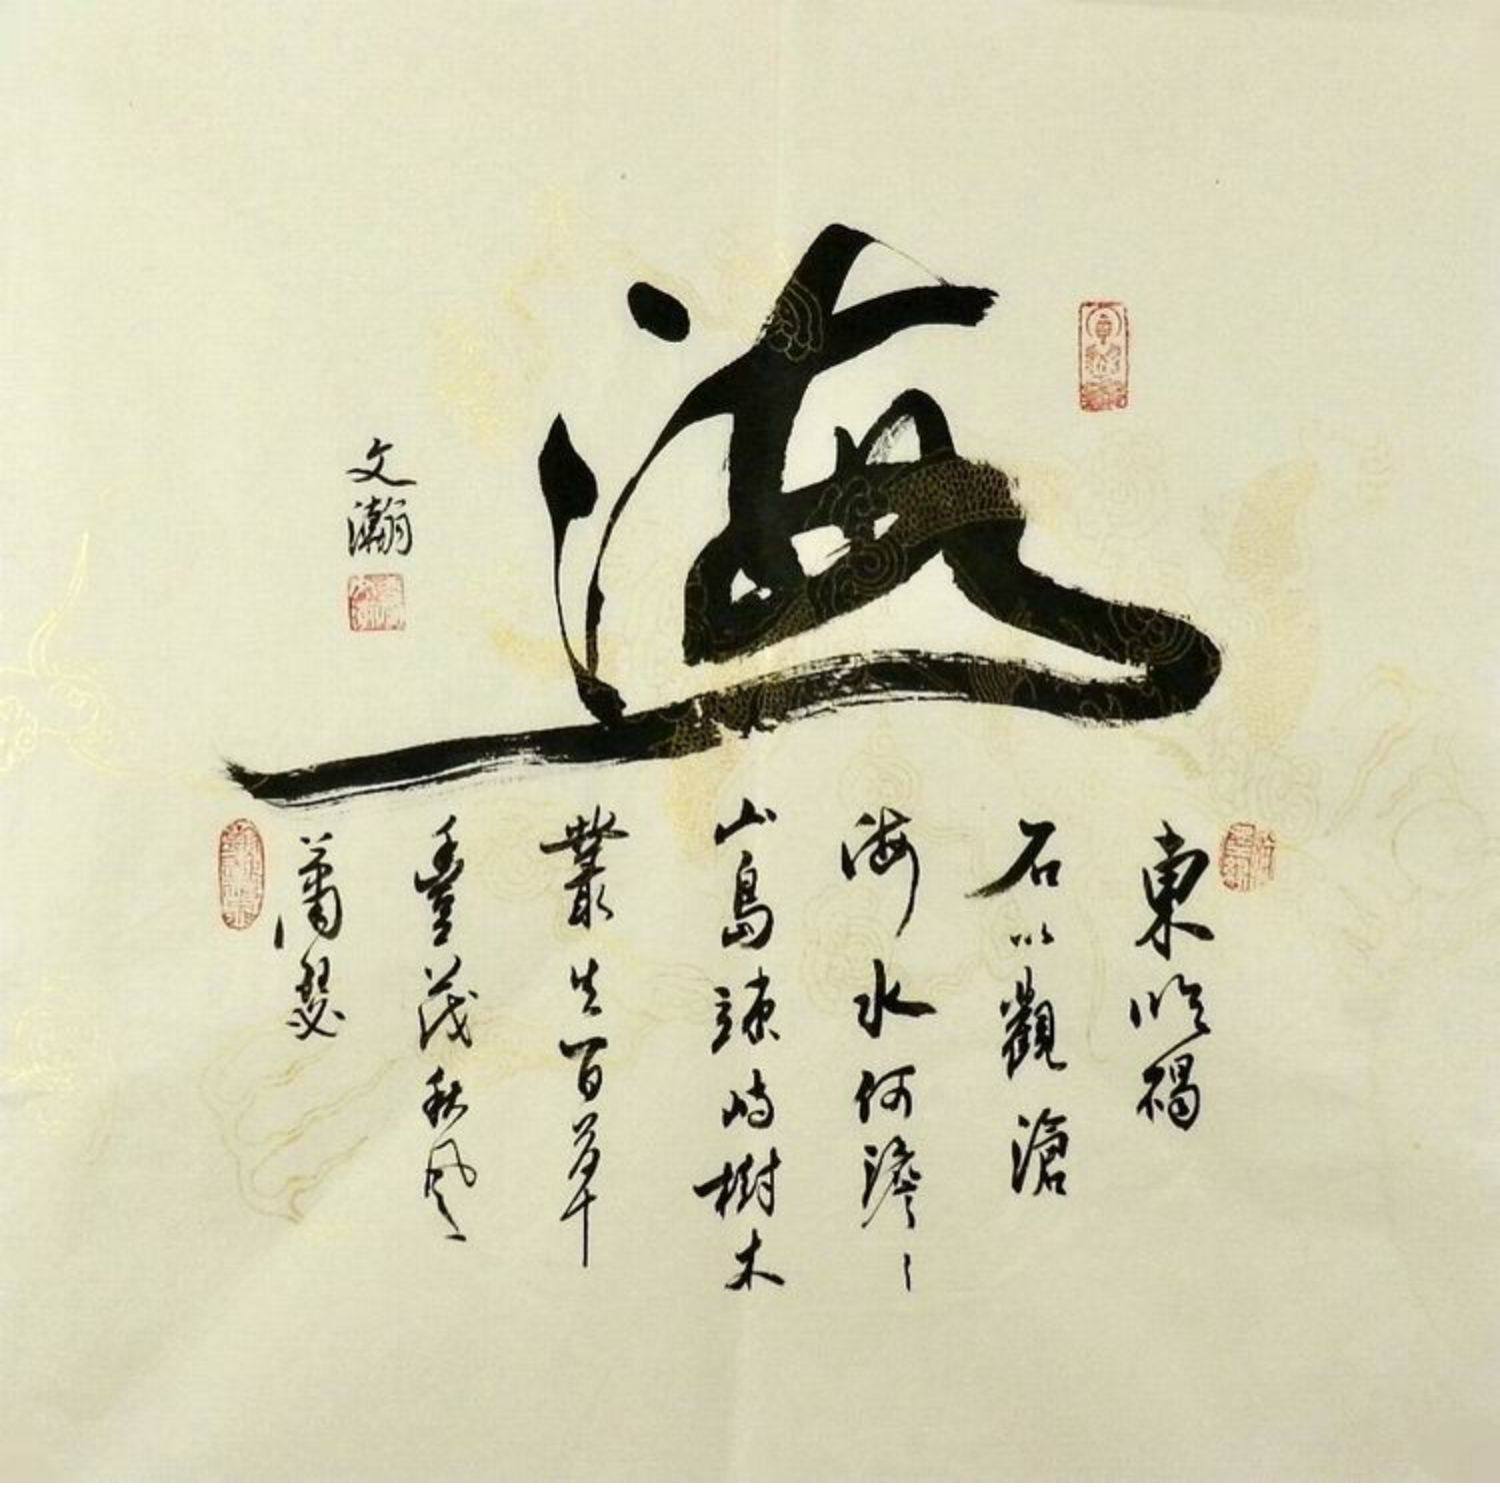 海
東临碣
石以觀滄
海水何澹〻
山島竦峙樹木
叢生百草
豐茂秋風
蕭瑟
文瀚